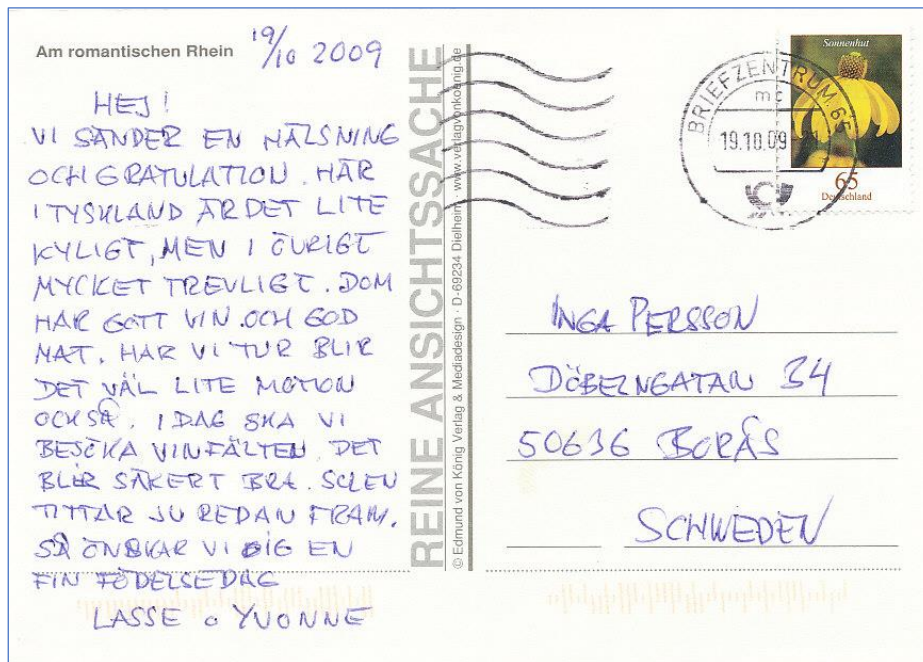 Am romantischen Rhein
19/10 2009
HEJ!
VI SÄNDER EN HÄLSNING
OCH GRATULATION. HÄR
I TYSKLAND ÄR DET LITE
KYLIGT, MEN I ÖVRIGT
MYCKET TREVLIGT. DOM
HAR GOTT VIN OCH GOD
MAT. HAR VI TUR BLIR
DET VÄL LITE MOTION
OCKSÅ. IDAG SKA VI
BESÖKA VINFÄLTEN. DET
BLIR SÄKERT BRA. SOLEN
TITTAR JU REDAN FRAM.
SÅ ÖNSKAR VI DIG EN
FIN FÖDELSEDAG
LASSE o YVONNE
REINE ANSICHTSSACHE
© Edmund von König Verlag & Mediadesign · D-69234 Dielheim · www.verlagvonkoenig.de
BRIEFZENTRUM 65
mc
19.10.09
Sonnenhut
65
Deutschland
INGA PERSSON
DÖBELNGATAN 34
50636 BORÅS
SCHWEDEN